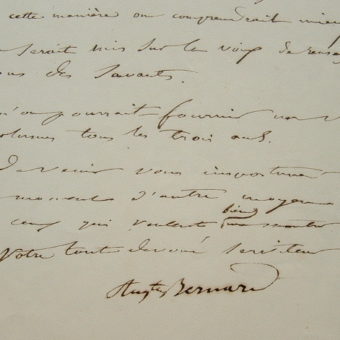 cette manière on comprendrait mieux
serait mis sur la voie de
des savants.
qu'on pourrait fournir un v
volumes tous les trois ans.
Devenir vous importuner
moment d'autre moyens
ceux qui veulent bien
Votre tout dévoué serviteur
Augte Bernard